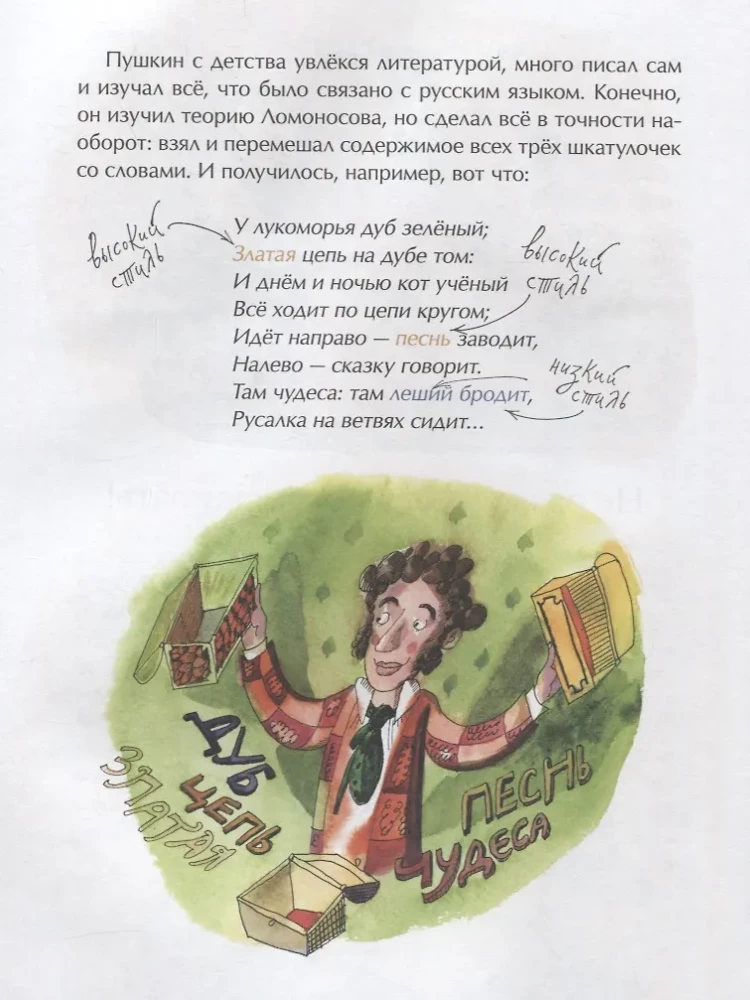 Пушкин с детства увлёкся литературой, много писал сам
и изучал всё, что было связано с русским языком. Конечно,
он изучил теорию Ломоносова, но сделал всё в точности на-
оборот: взял и перемешал содержимое всех трёх шкатулочек
со словами. И получилось, например, вот что:
высокий
стиль
У лукоморья дуб зелёный;
Златая цепь на дубе том:
И днём и ночью кот учёный
Всё ходит по цепи кругом;
Идёт направо — песнь заводит,
Налево — сказку говорит.
Там чудеса: там леший бродит,
Русалка на ветвях сидит...
высокий
стиль
низкий
стиль
ДУБ
ЦЕПЬ
ЗЛАТАЯ
ПЕСНЬ
ЧУДЕСА